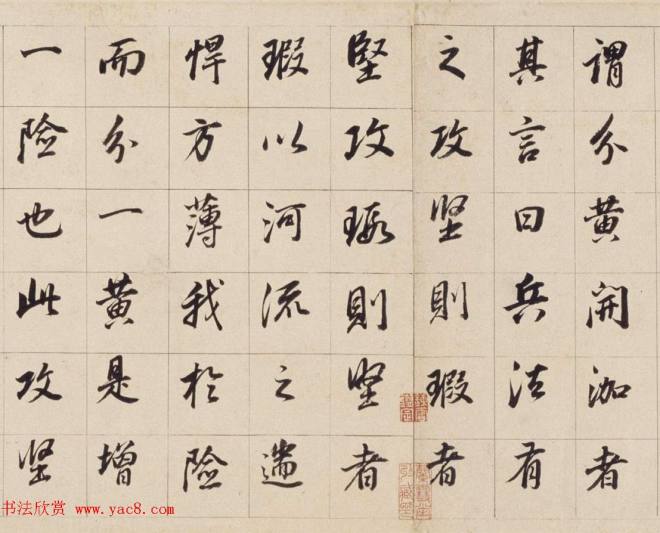 謂分黄開泇者
其言曰兵法有
之攻坚則瑕者
堅攻瑕則坚者
瑕以河流之湍
悍方薄我於險
而分一黄是增
一險也此攻坚
书法欣赏 www.yac8.com